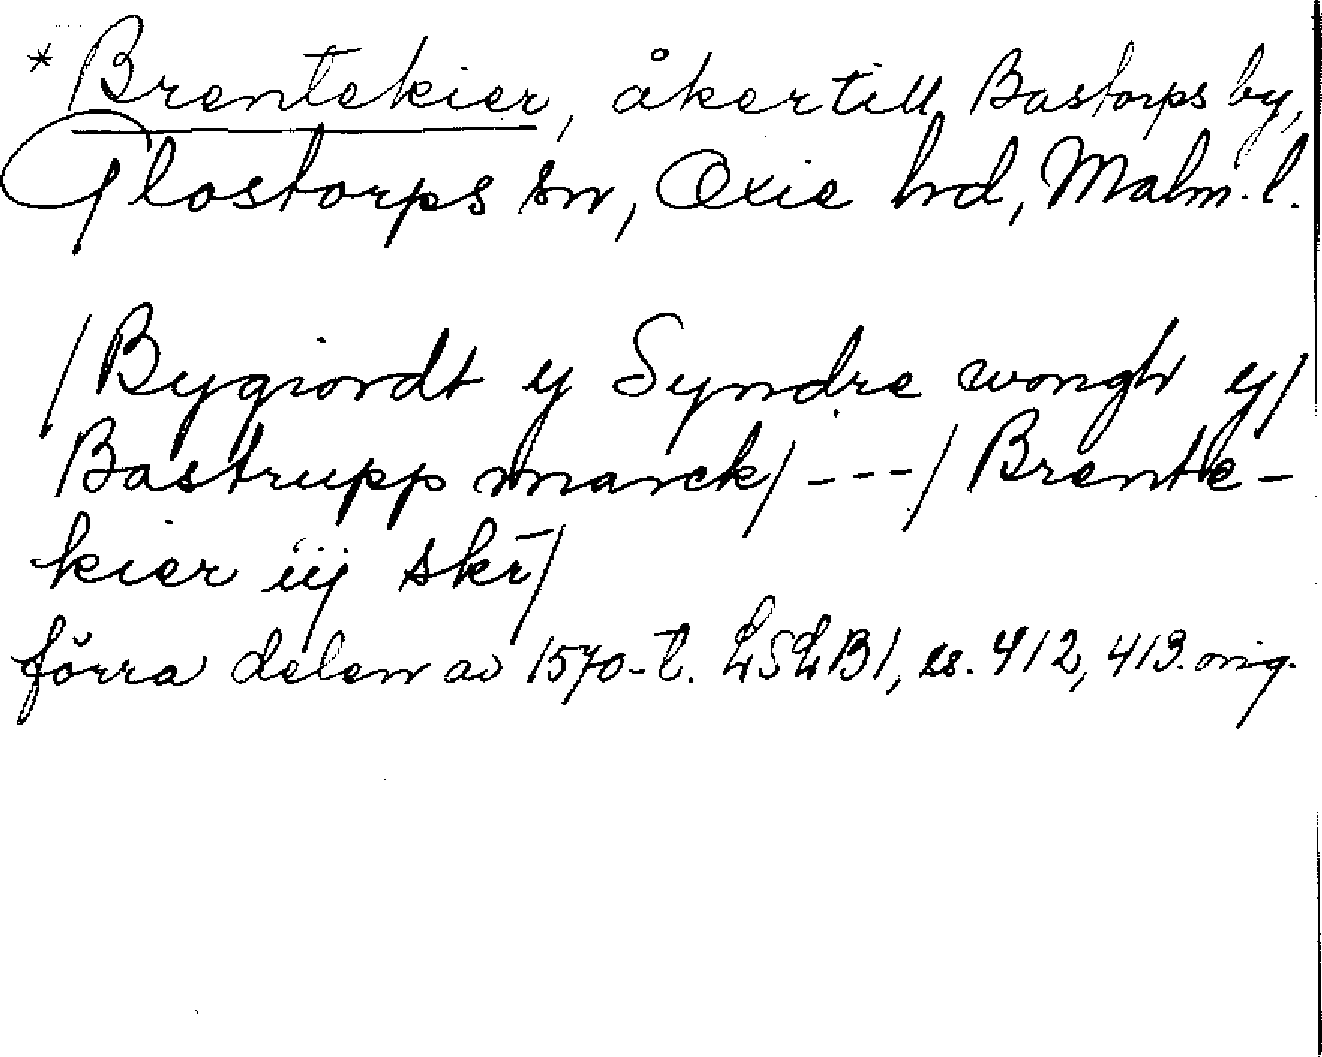 * Brentekier, åker till Bastorps by,
Glostorps sn, Oxie hd, Malm. l.
/Bygiordt y Syndre wongh y/
Bastrupp marck/ - - - / Brente-
kier iij skr̄/
förra delen av 1570-t. LSLB1, s. 412, 413. orig.